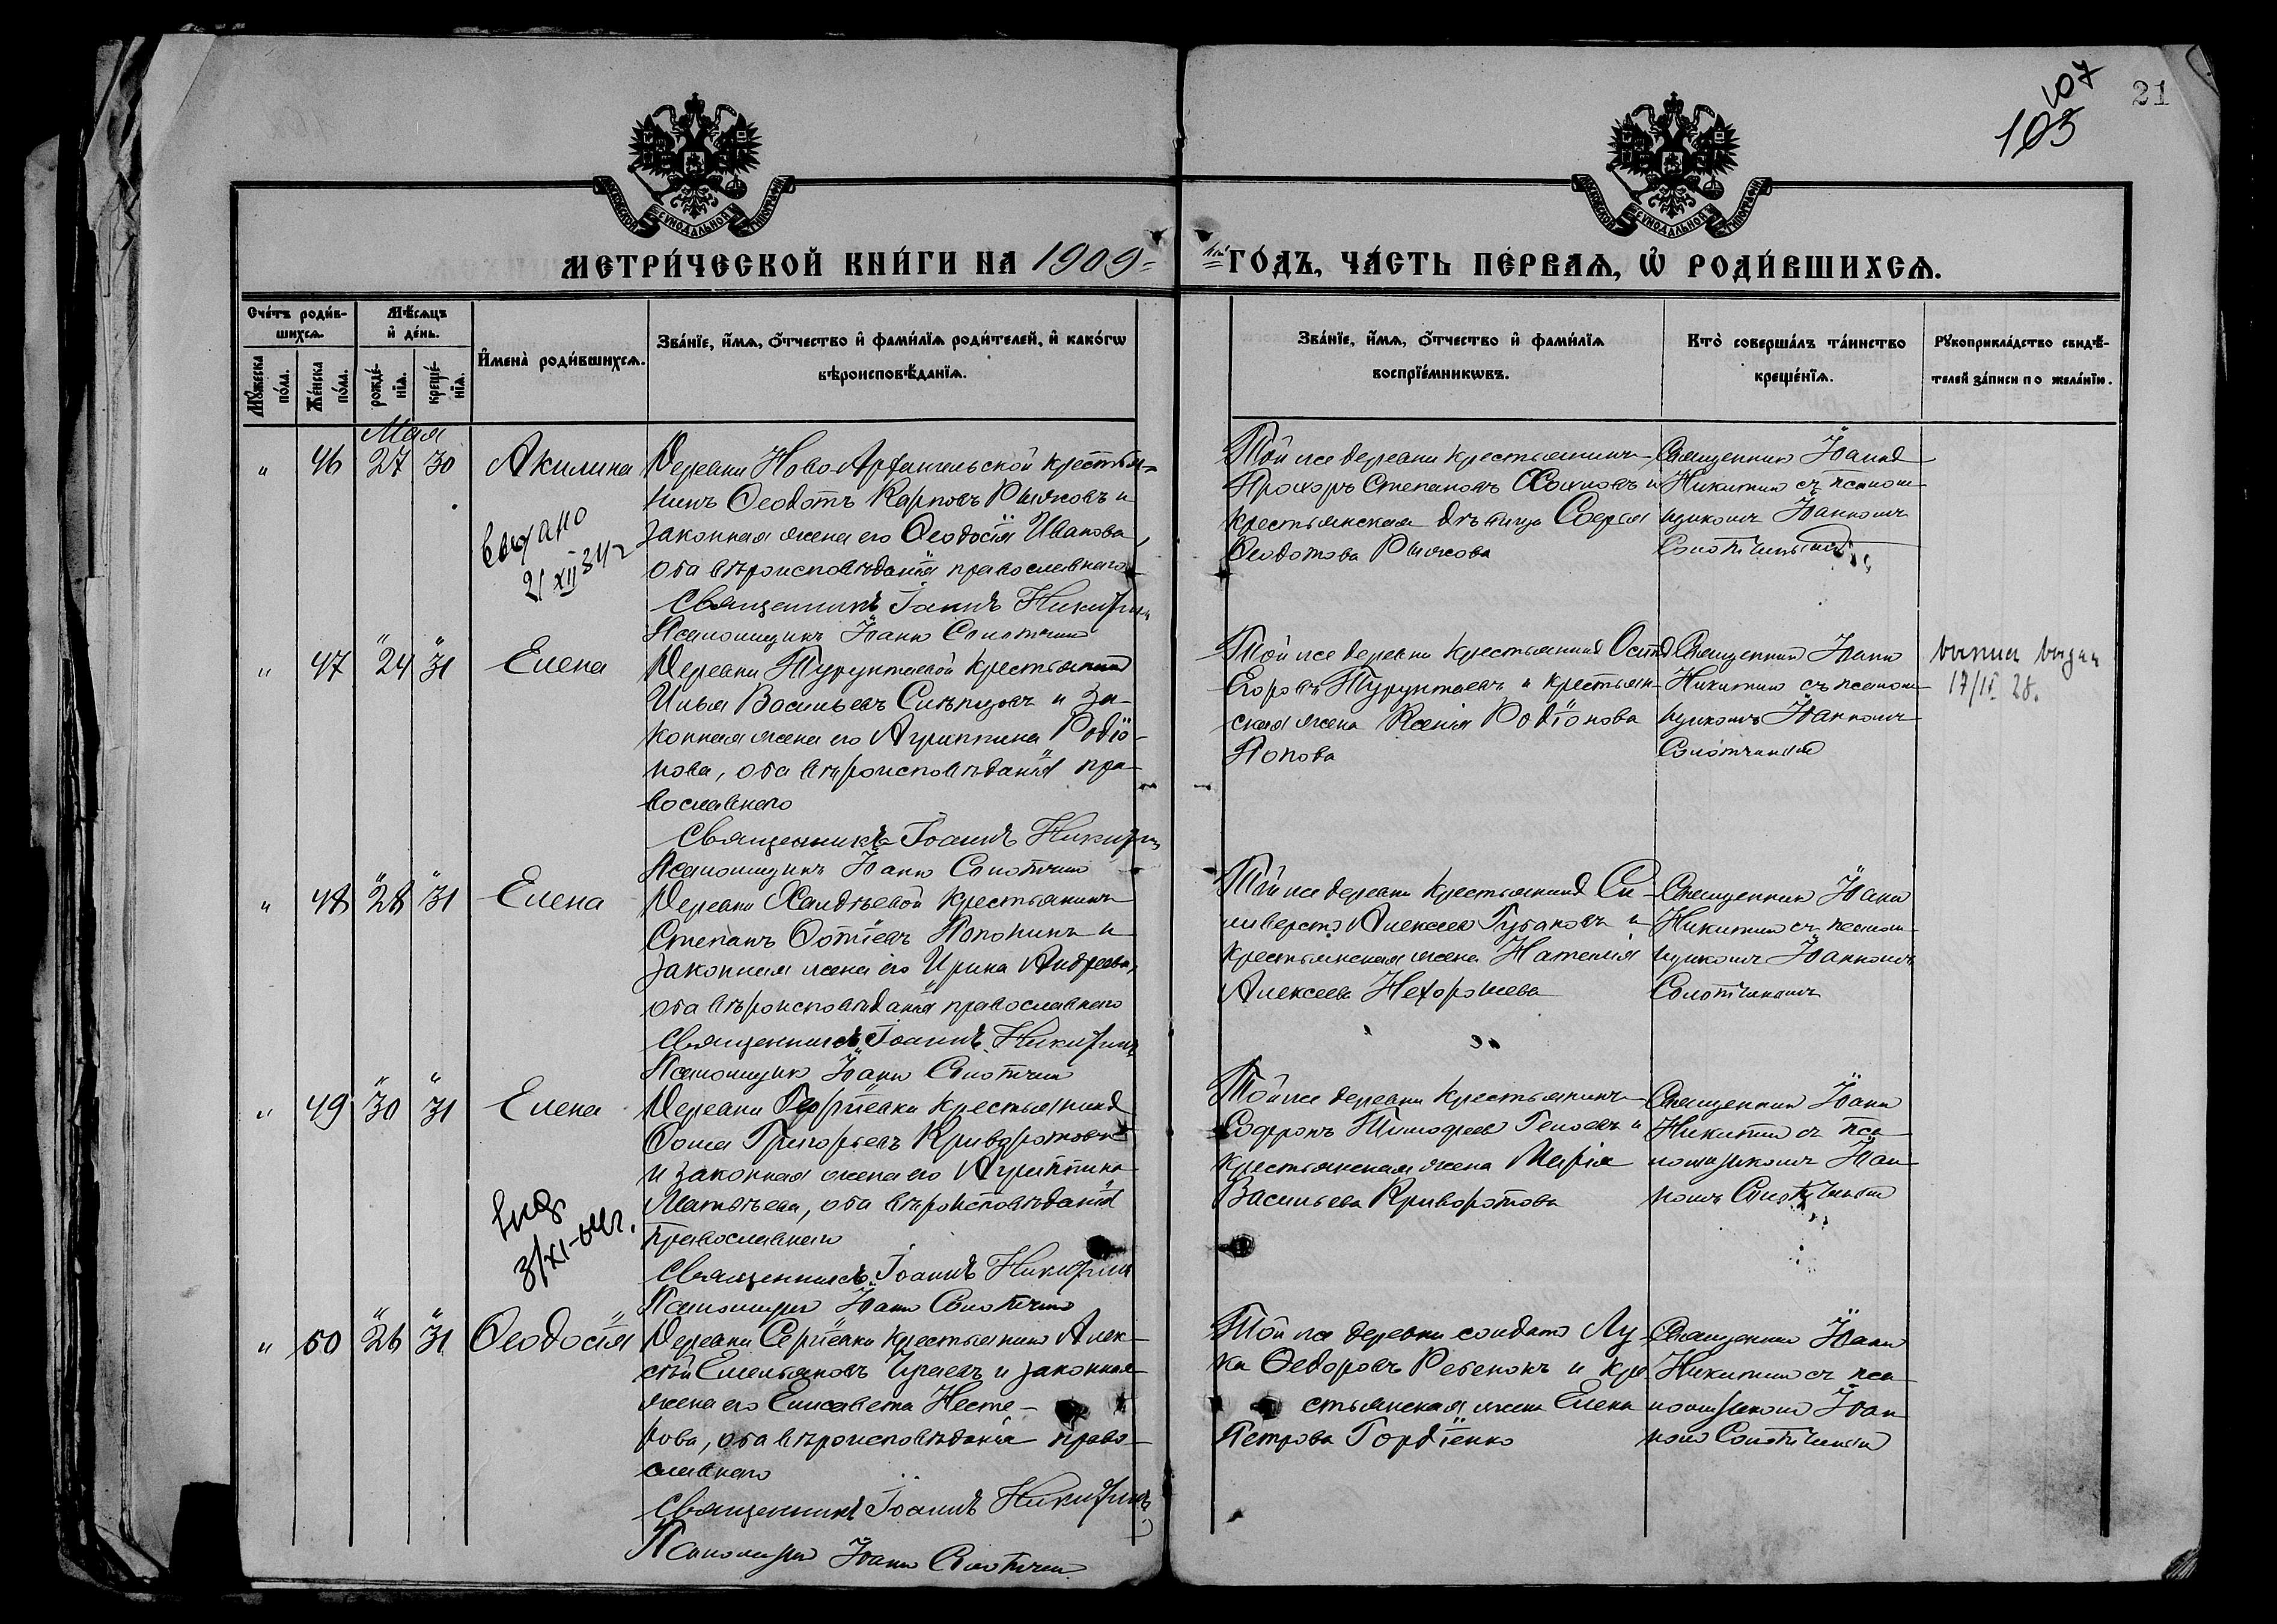 107
103
21
МОСКОВСКОЙ СѴНОДАЛЬНОЙ ТИПОГРАФІИ
МОСКОВСКОЙ СѴНОДАЛЬНОЙ ТИПОГРАФІИ
МЕТРИ́ЧЕСКОЙ КНИ́ГИ НА 1909-
ый ГО́ДЪ, ЧА́СТЬ ПЕ́РВАѦ, Ѡ҆ РОДИ́ВШИХСѦ.
Сче́тъ роди́в-
шихсѧ.
Мѣ́сѧцъ
и҆ де́нь.
Мꙋ́жеска
по́ла.
Же́нска
по́ла.
рожде́-
нїѧ.
креще́-
нїѧ.
И҆мена̀ роди́вшихсѧ.
Зва́нїе, и҆́мѧ, ѻ҆́тчество и҆ фами́лїѧ роди́телей, и҆ како́гѡ
вѣроисповѣ́данїѧ.
Зва́нїе, и҆́мѧ, ѻ҆́тчество и҆ фами́лїѧ
воспрїе́мникѡвъ.
Кто̀ соверша́лъ та́инство
креще́нїѧ.
Рꙋкоприкла́дство свидѣ́-
телей за́писи по жела́нїю.
Мая
" 46 27 30 Акилина
Деревни Ново-Архангельской крестья-
нинъ Ѳеодотъ Карповъ Рыжовъ и
законная жена его Ѳеодосія Иванова,
оба вѣроисповѣданія православнаго
Священникъ Іоаннъ Никитинъ
Псаломщикъ Іоаннъ Солотчинъ
выдано
21 XII
Той же деревни крестьянинъ
Прохоръ Степановъ и
крестьянская дѣвица Софія
Ѳеодотова Рыжова
Священникъ Іоаннъ
Никитинъ съ псалом-
щикомъ Іоанномъ
Солотчинымъ
" 47 24 31 Елена
Деревни Турунтаевой крестьянинъ
Илья Васильевъ Слѣпцовъ и за-
конная жена его Агриппина Родіо-
нова, оба вѣроисповѣданія пра-
вославнаго
Священникъ Іоаннъ Никитинъ
Псаломщикъ Іоаннъ Солотчинъ
Той же деревни крестьянинъ
Егоровъ Турунтаевъ и крестьян-
ская жена Ксенія Родіонова
Попова
Священникъ Іоаннъ
Никитинъ съ псалом-
щикомъ Іоанномъ
Солотчинымъ
17/IV 28.
" 48 28 31 Елена
Деревни Халдѣевой крестьянинъ
Степанъ Фотіевъ и
законная жена его Ирина Андреева,
оба вѣроисповѣданія православнаго
Священникъ Іоаннъ Никитинъ
Псаломщикъ Іоаннъ Солотчинъ
Той же деревни крестьянинъ Си-
ливерстъ Алексеевъ и
крестьянская жена Наталія
Алексеева Нехорошева
Священникъ Іоаннъ
Никитинъ съ псалом-
щикомъ Іоанномъ
Солотчинымъ
" 49 30 31 Елена
Деревни Георгіевки крестьянинъ
Ѳома Григорьевъ Криворотовъ
и законная жена его Агриппина
Матвѣева, оба вѣроисповѣданія
православнаго
Священникъ Іоаннъ Никитинъ
Псаломщикъ Іоаннъ Солотчинъ
Той же деревни крестьянинъ
Софронъ Тимофеевъ и
крестьянская жена Марія
Васильева Криворотова
Священникъ Іоаннъ
Никитинъ съ пса-
ломщикомъ Іоан-
номъ Солотчинымъ
" 50 26 31 Ѳеодосія
Деревни Сергіевки крестьянинъ Алек-
сѣй Емельяновъ и законная
жена его Елисавета Несте-
рова, оба вѣроисповѣданія право-
славнаго
Священникъ Іоаннъ Никитинъ
Псаломщикъ Іоаннъ Солотчинъ
Той же деревни солдатъ Лу-
ка Ѳедоровъ Ребенокъ и кре-
стьянская жена Елена
Петрова Гордіенко
Священникъ Іоаннъ
Никитинъ съ пса-
ломщикомъ Іоан-
номъ Солотчинымъ